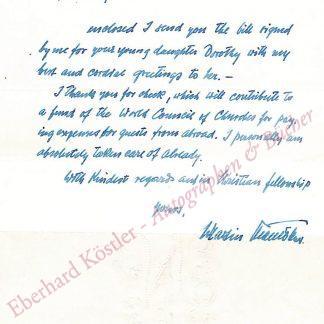 enclosed I send you the bill signed
by me for your young daughter Dorothy with my
best and cordial greetings to her. –
I thank you for check, which will contribute to
a fund of the World Council of Churches for pay,
ing expenses for guests from abroad. I personally am
absolutely taken care of already.
With kindest regards and in Christian fellowship
Yours,
Martin Niemöller.
Eberhard Köstler - Autographen & Bücher